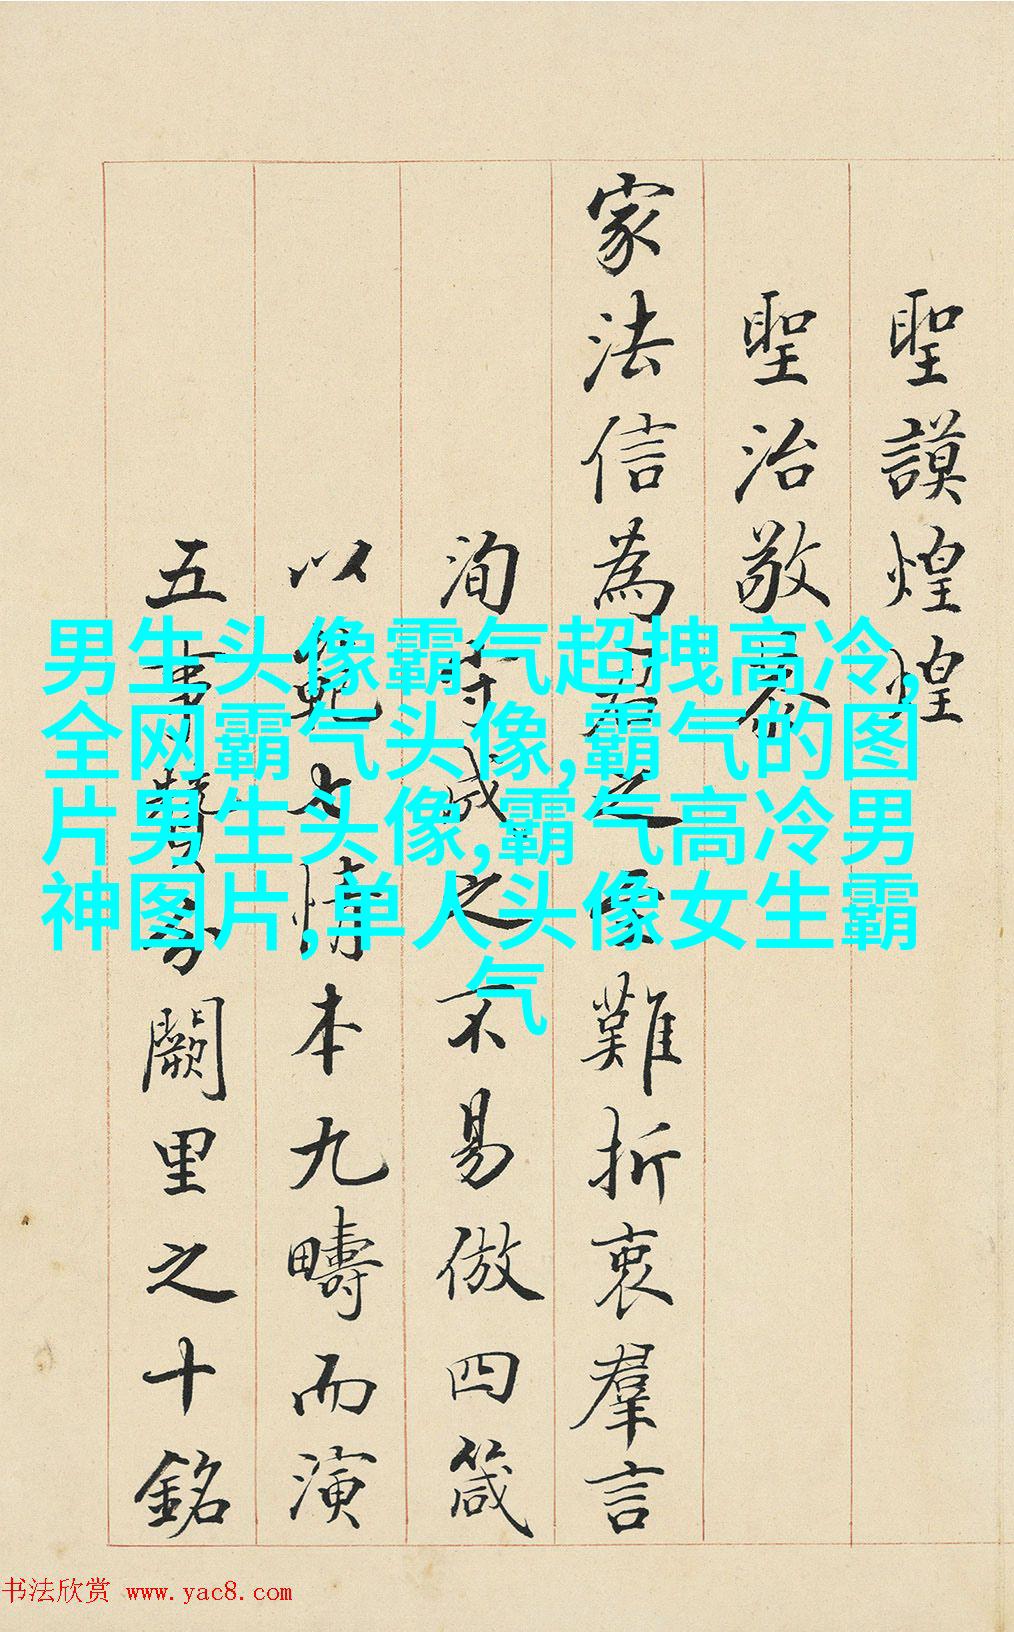 聖謨煌煌
聖治敬
家法信為之難折衷羣言
洵成之不易倣四箴
以範七情本九疇而演
五事闕里之十銘
男生头像霸气超拽高冷,
全网霸气头像,霸气的图
片男生头像,霸气高冷男
神图片,单人头像女生霸
气
书法欣赏 www.yac8.com